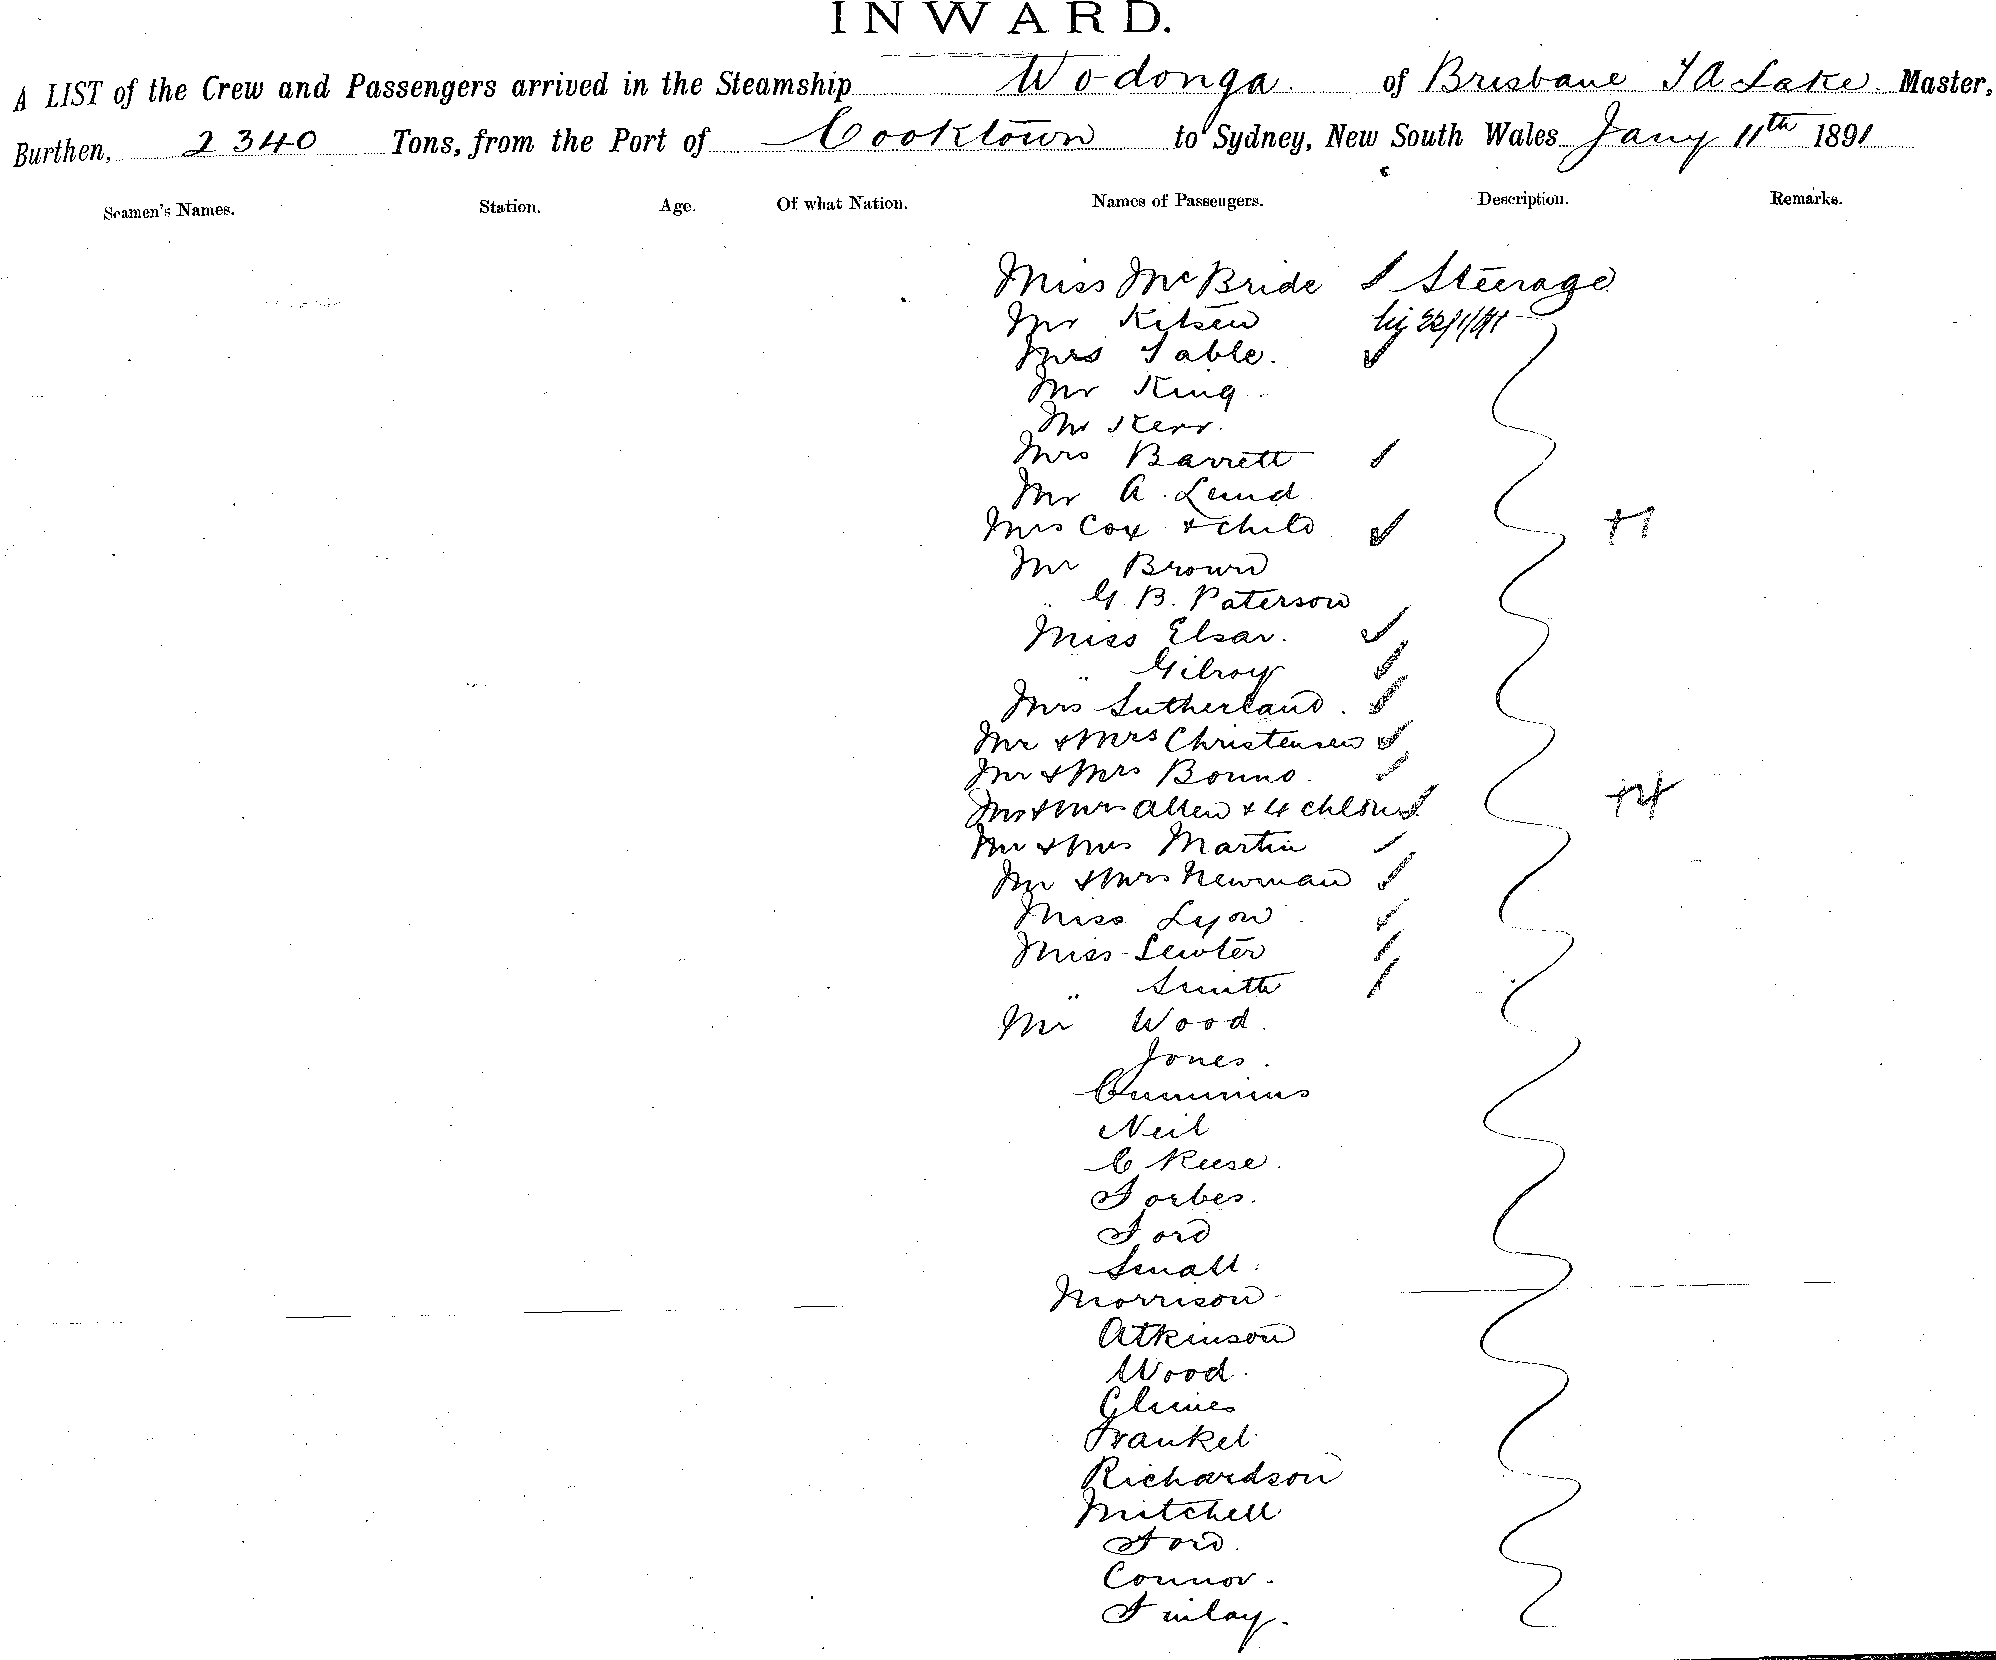 INWARD.
A LIST of the Crew and Passengers arrived in the Steamship Wodonga of Brisbane T A Lake Master,
Burthen, 2340 Tons, from the Port of Cooktown to Sydney, New South Wales Jany 11th 1891
Seamen's Names. Station. Age. Of what Nation. Names of Passengers. Description. Remarks.
Miss McBride Steerage
Mr Kitsen
Mrs Sable.
Mr King.
Mr Kerr.
Mrs Barrett
Mr A. Lund
Mrs Cox & child +1
Mr Brown
" G. B. Paterson
Miss Elsar.
" Gilroy
Mrs Sutherland.
Mr & Mrs Christensen
Mr & Mrs Bonno.
Mr & Mrs Allen & 4 chldn +4
Mr & Mrs Martin
Mr & Mrs Newman
Miss Lyon
Miss Lewter
" Smith
Mr Wood.
Jones.
Cummins
Neil
C Reese.
Forbes.
Ford
Small.
Morrison
Atkinson
Wood.
Frankel
Richardson
Mitchell
Ford.
Connor.
Finlay.